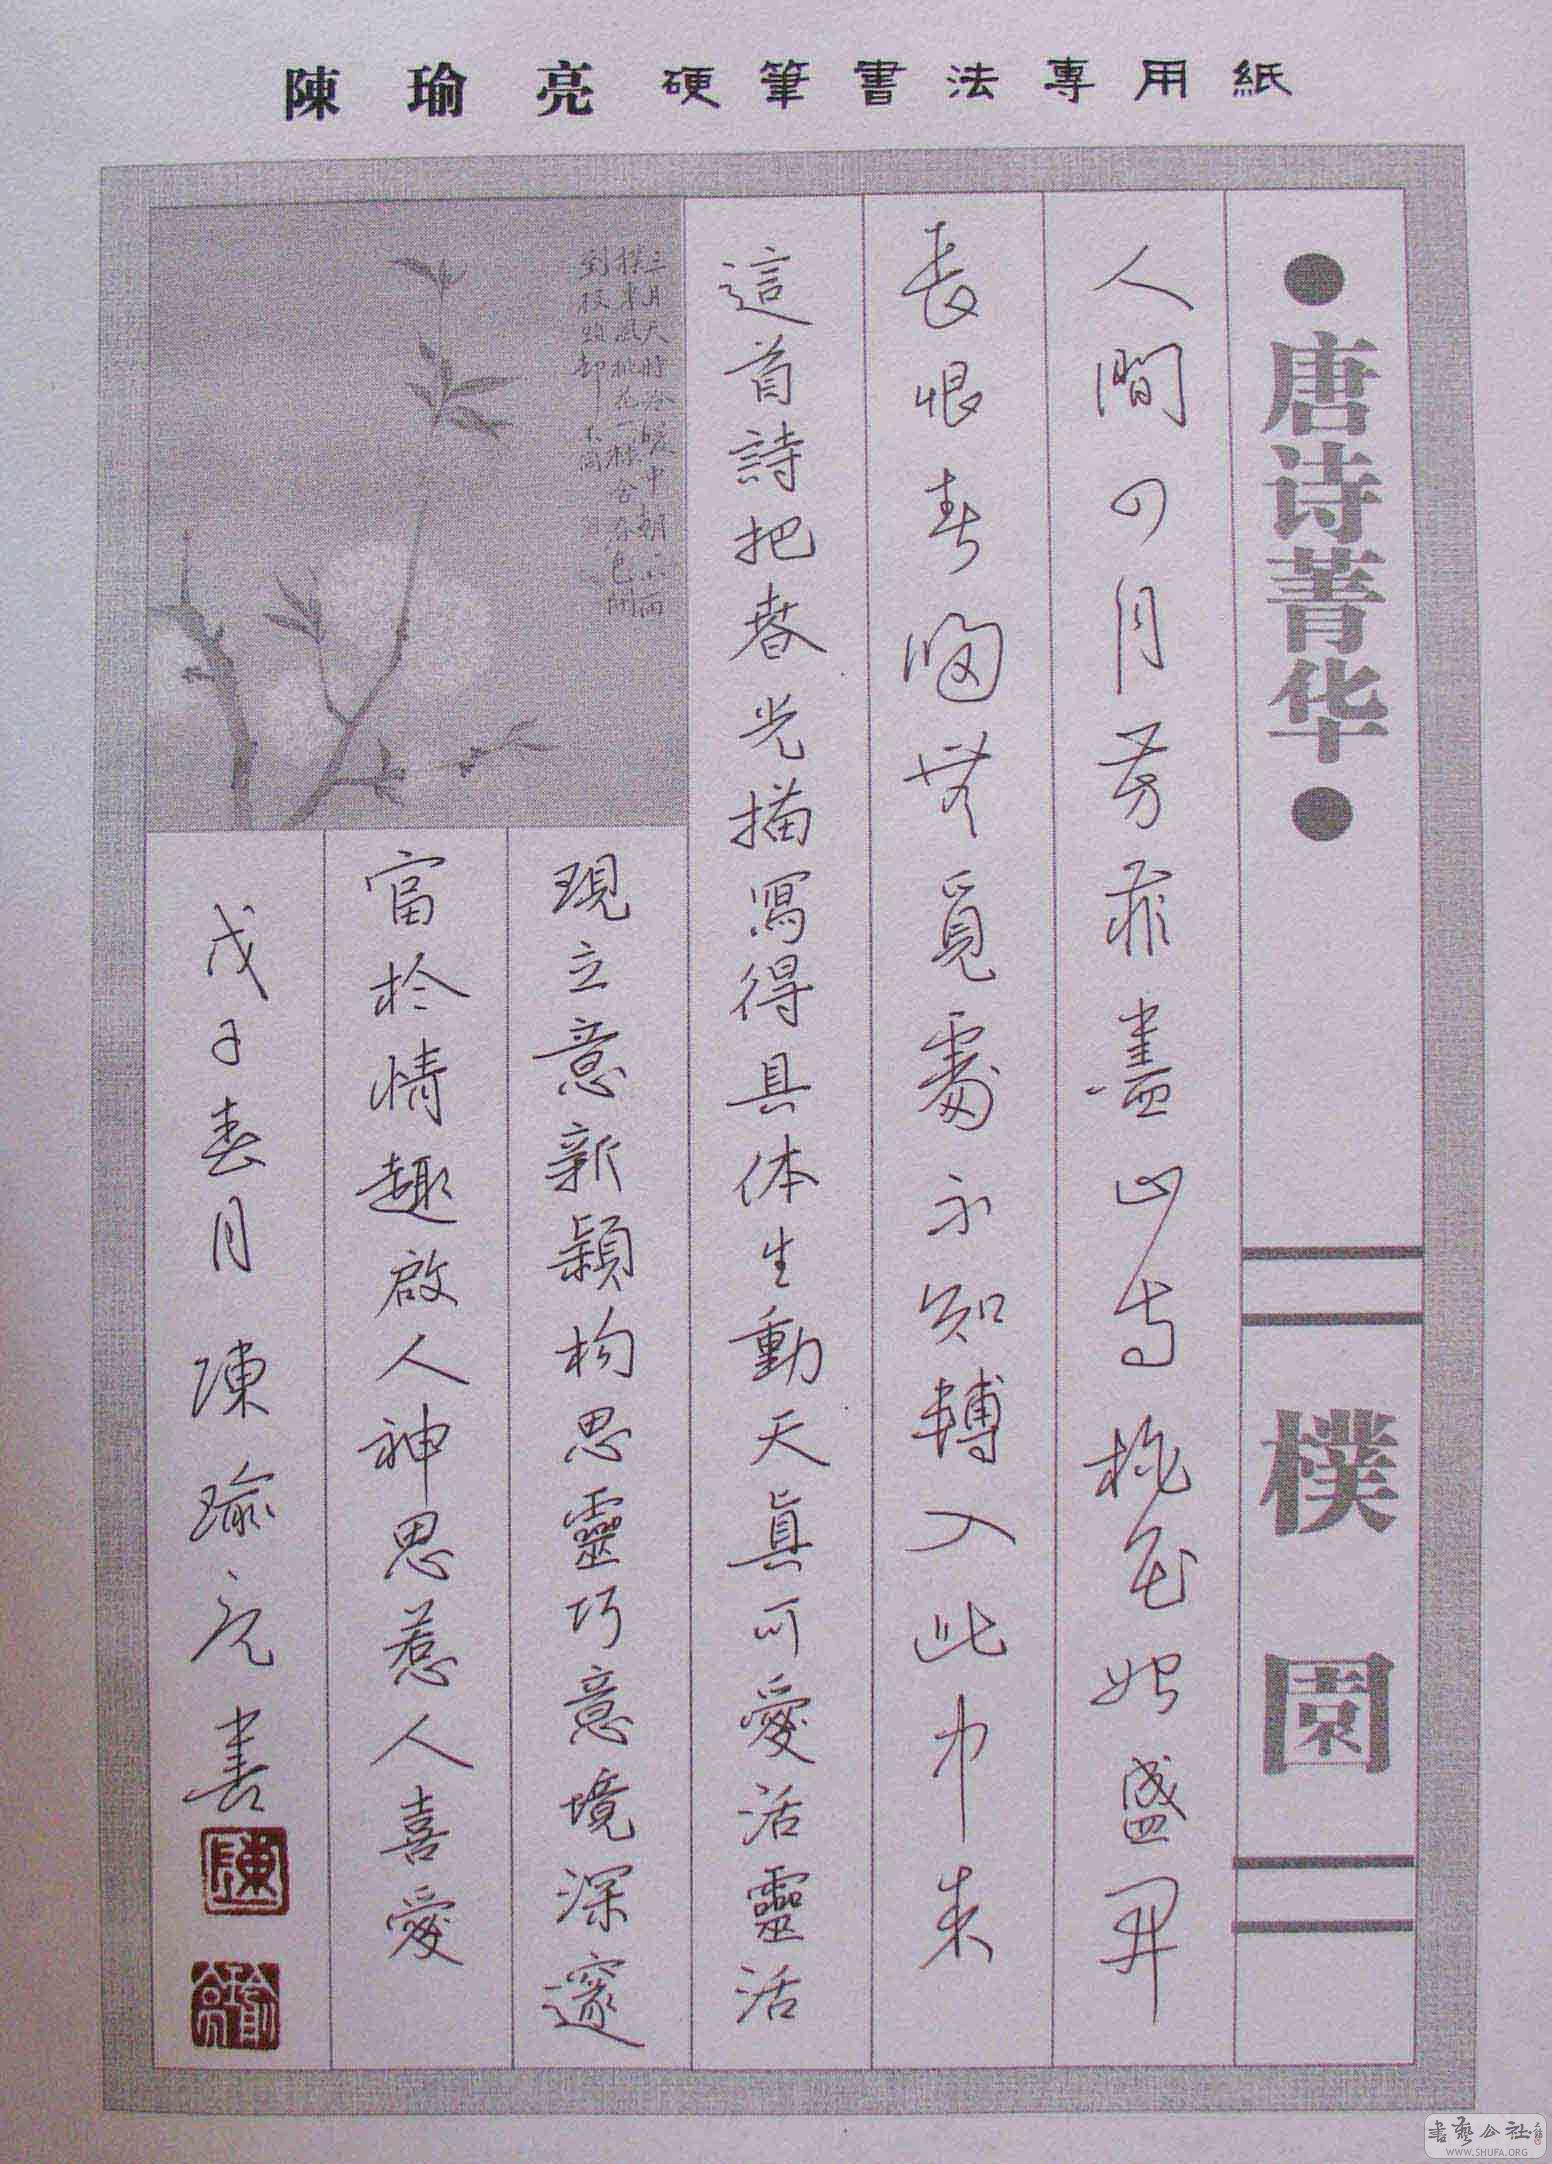 陳瑜亮硬筆書法專用紙
●唐诗菁华●
樸園
人間四月芳菲盡山寺桃花始盛開
長恨春歸無覓處不知轉入此中來
這首詩把春光描寫得具体生動天真可愛活靈活
現立意新穎构思靈巧意境深邃
富於情趣啟人神思惹人喜愛
戊子春月陳瑜亮書
陳
瑜亮
三月天時冷暖中朝小雨
風桃花一樣分春色開
到枝頭却不同
書藝公社
WWW.SHUFA.ORG